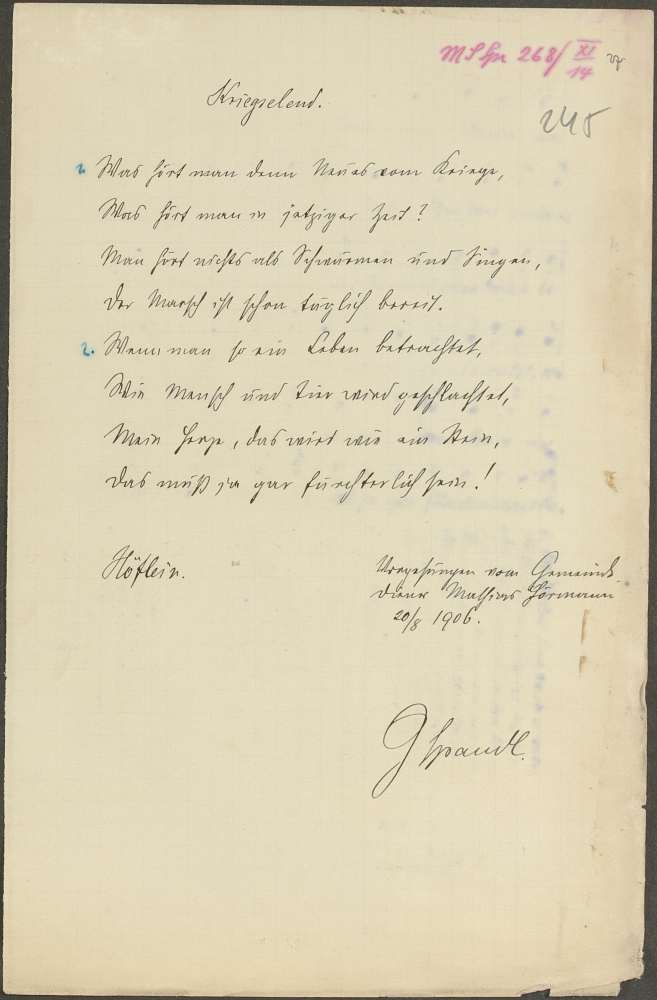 268/XI
14
245
Kriegselend.
1. Was hört man denn Neues vom Kriege,
Was hört man in jetziger Zeit?
Man hört nichts als Schwärmen und Singen,
Der Marsch ist schon täglich bereit.
2. Wenn man so ein Leben betrachtet,
Wie Mensch und Tier wird geschlachtet,
Mein Herze, das wird wie ein Stein,
Das muß ja gar fürchterlich sein!
Höflein.
Vorgesungen vom Gemeinde
diener Mathias Hörmann
20/8 1906.
G Spandl.